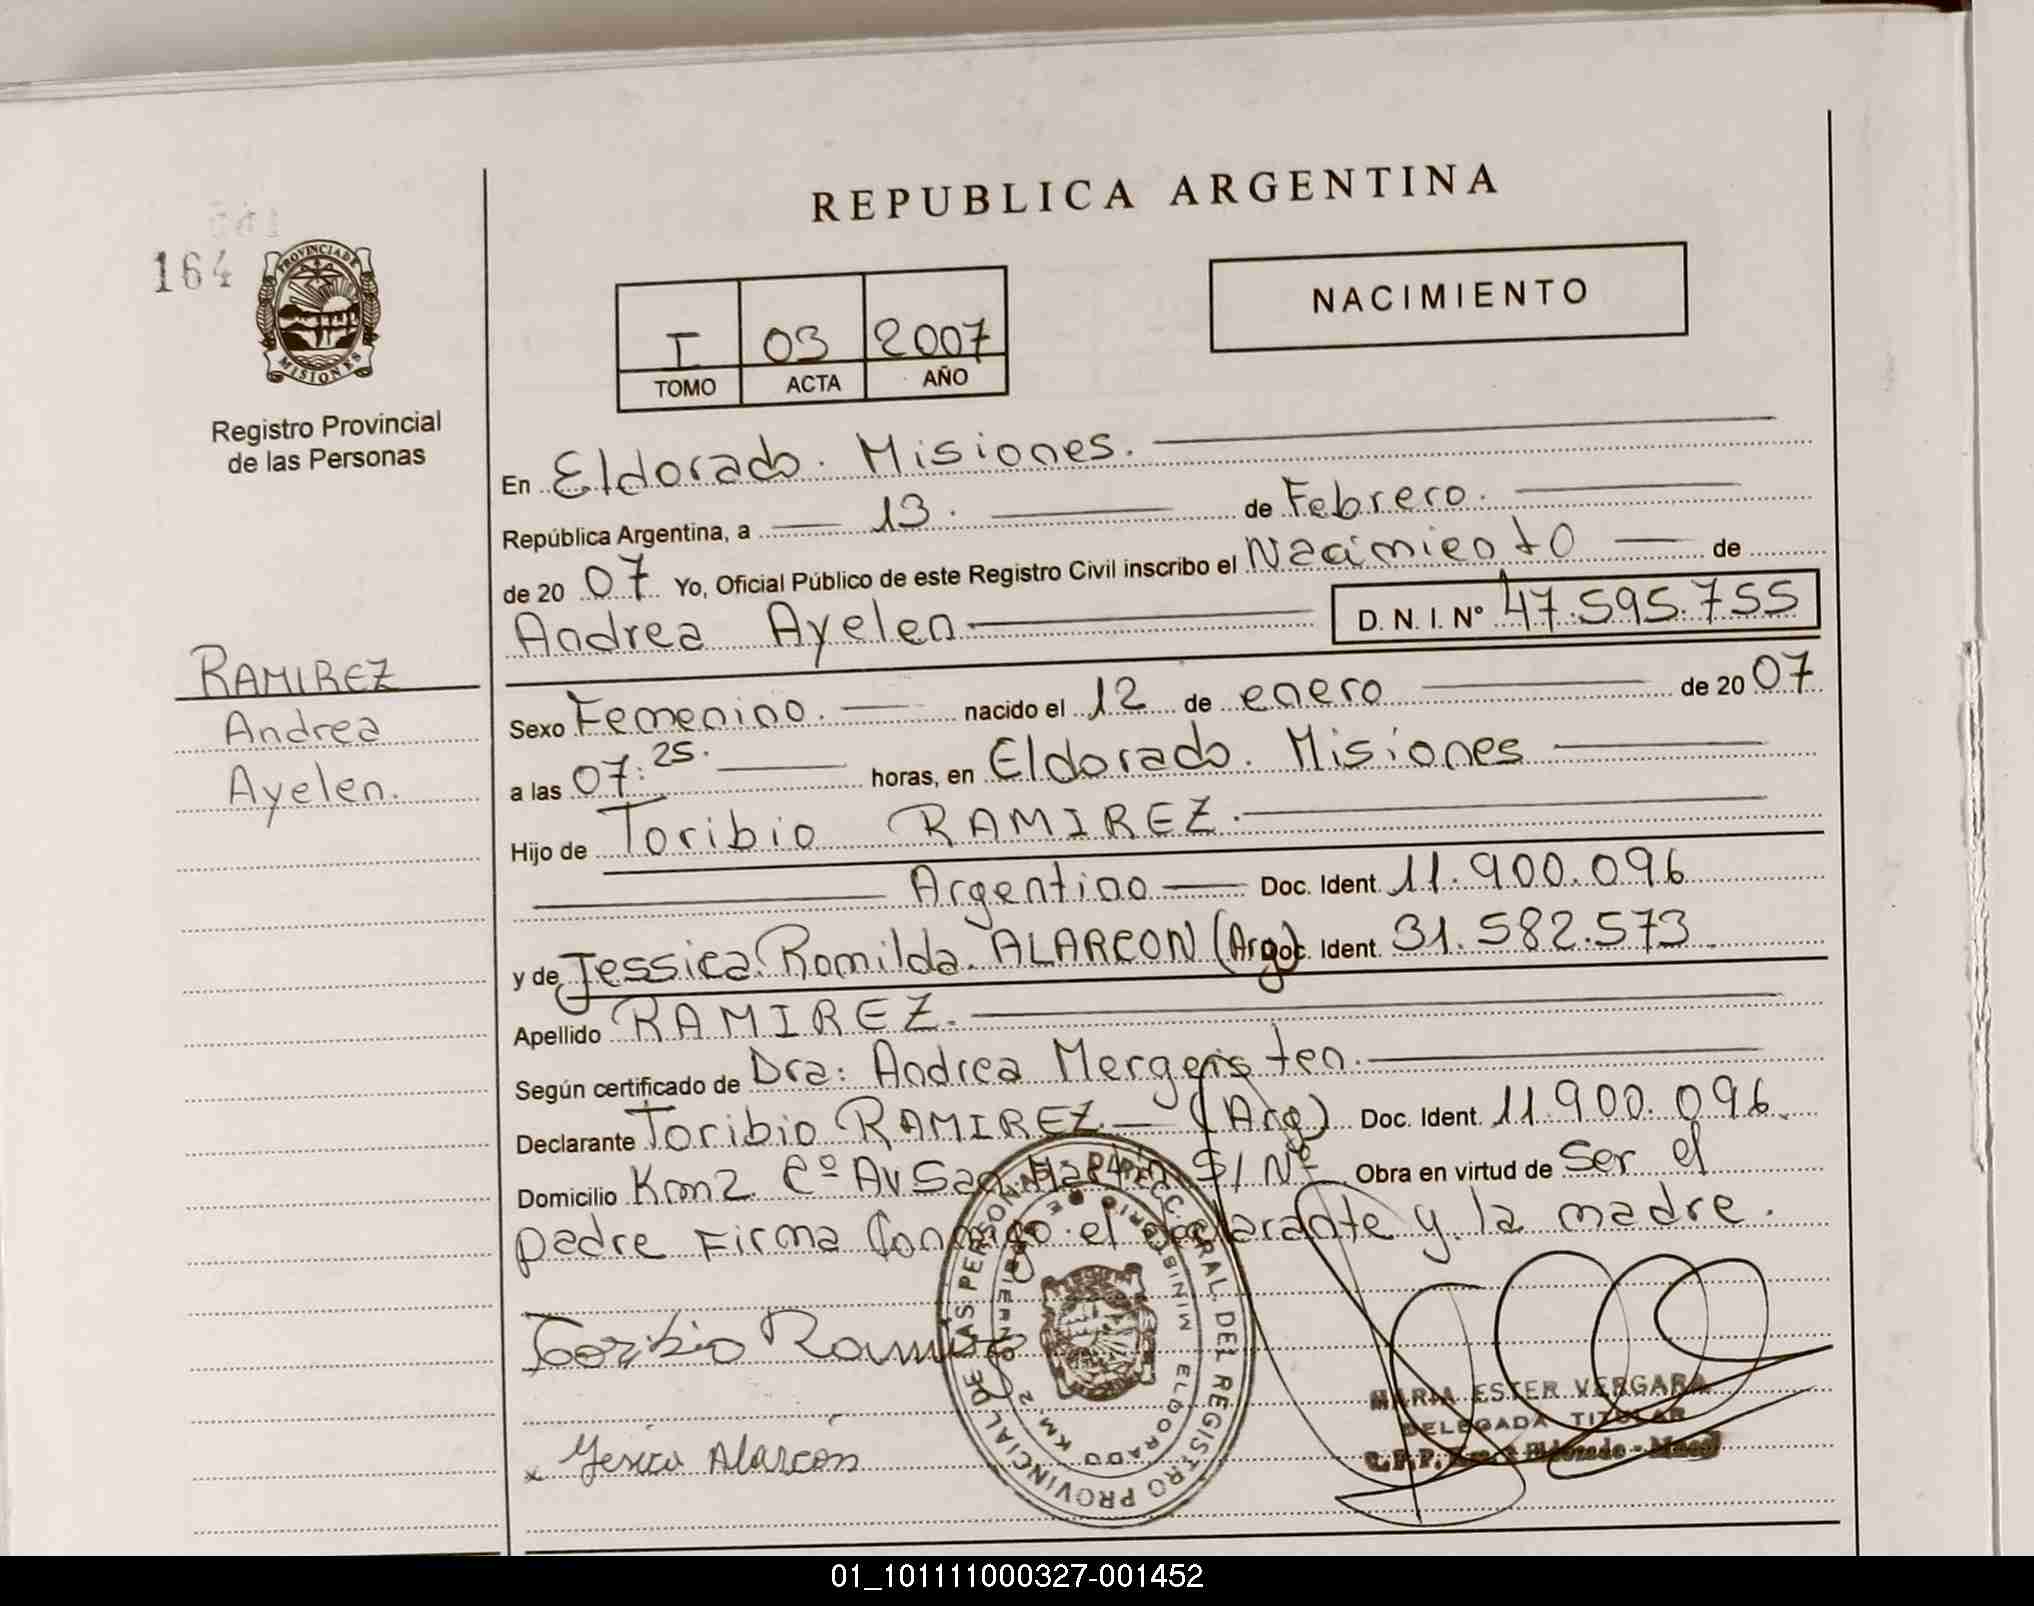 REPUBLICA ARGENTINA
164
PROVINCIA DE
MISIONES
Registro Provincial
de las Personas
I 03 2007
TOMO ACTA AÑO
NACIMIENTO
En Eldorado. Misiones.
República Argentina, a 13. de Febrero.
de 20 07 Yo, Oficial Público de este Registro Civil inscribo el Nacimiento de
Andrea Ayelen D. N. I. Nº 47.595.755
RAMIREZ
Andrea
Ayelen.
Sexo Femenino. nacido el 12 de enero de 20 07
a las 07:25. horas, en Eldorado. Misiones
Hijo de Toribio RAMIREZ.
Argentino Doc. Ident. 11.900.096
y de Jessica Romilda. ALARCON (Arg) Doc. Ident. 31.582.573
Apellido RAMIREZ.
Según certificado de Dra: Andrea Mergeristen.
Declarante Toribio RAMIREZ. (Arg) Doc. Ident. 11.900.096.
Domicilio Km2 Cº Av San Martin S/Nº Obra en virtud de Ser el
padre Firma Conmigo el declarante y la madre.
Toribio Ramirez
x Yesica Alarcón
DIRECC. GRAL. DEL REGISTRO PROVINCIAL DE LAS PERSONAS
MINISTERIO DE GOBIERNO
ELDORADO KM 2
MARIA ESTER VERGARA
DELEGADA TITULAR
01_101111000327-001452